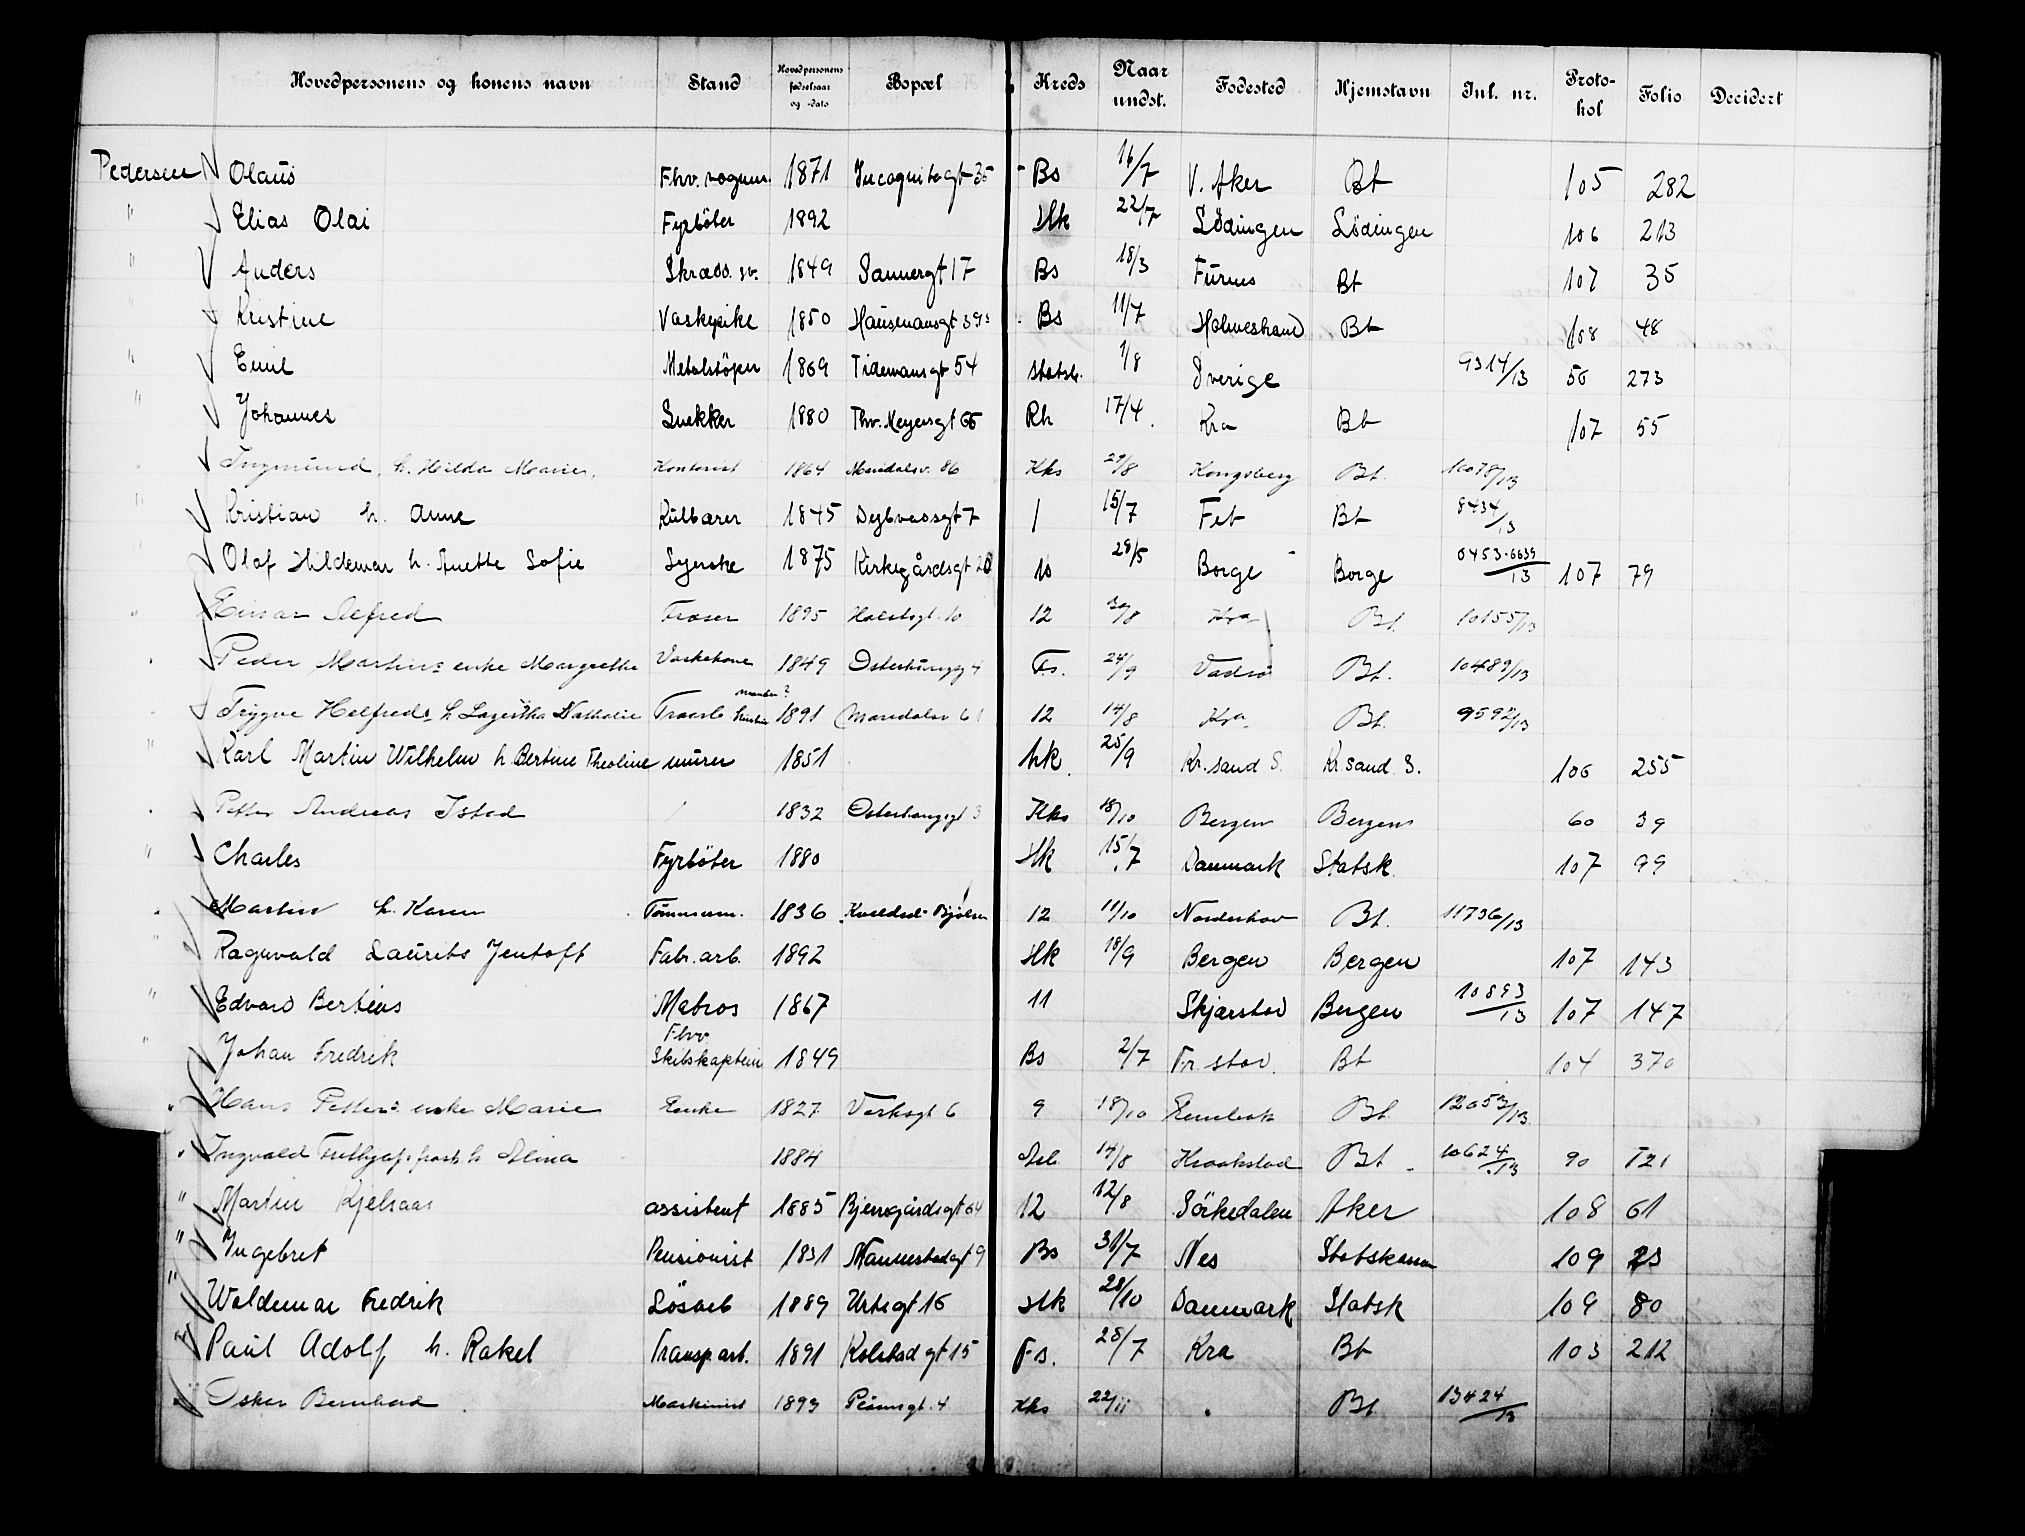 Hovedpersonens og konens navn Stand Hovedpersonens fødselsaar og -dato Bopæl Kreds Naar undst. Fødested Hjemstavn Inl. nr. Protokol Folio Decidert
Pedersen Olaus Fhv. vognm. 1871 Incognitogt 35 Bs 16/7 V. Aker Bt 105 282
" Elias Olai Fyrbøter 1892 Hk 22/7 Lødingen Lødingen 106 213
" Anders Skræd. sv. 1849 Sannergt 17 Bs 18/3 Furnes Bt 107 35
" Kristine Vaskepike 1850 Hausmansgt 39 Bs 11/7 Holmestrand Bt 108 48
" Emil Metalstøper 1869 Tidemansgt 54 Statsb. 1/8 Sverige 9314/13 56 273
" Johannes Snekker 1880 Thv. Meyersgt 66 Rh 17/4 Kra Bt 107 55
Ingmund h. Hilda Marie Kontorist 1864 Maridalsv. 86 Kks 29/8 Kongsberg Bt. 10078/13
" Kristian h. Anne Kulbærer 1845 Dybvadsgt 7 1 15/7 Fet Bt 8434/13
" Olaf Hildemar h. Anette Sofie Syerske 1875 Kirkegårdsgt 20 10 28/5 Borge Borge 6453-6639/13 107 79
" Einar Alfred Fræser 1895 Holstsgt. 10 12 30/8 Kra Bt. 10155/13
" Peder Martins enke Margrethe Vaskekone 1849 Østerhausgt 4 Fs. 24/9 Vadsø Bt. 10489/13
" Trygve Helfred h Lagertha Nathalie 1891 Maridalsv 61 12 14/8 Kra Bt. 9592/13
" Karl Martin Wilhelm h. Bertine Theoline murer 1851 Hk 25/9 Kr.sand S. Kr sand S. 106 255
" Petter Andreas Istad 1832 Østerhausgt 3 Kks 18/10 Bergen Bergen 60 39
" Charles Fyrbøter 1880 Hk 15/7 Danmark Statsk. 107 99
" Martin h. Karen Tømmerm. 1836 12 11/10 Norderhov Bt. 11736/13
" Ragnvald Laurits Jentoft Fabr. arb. 1892 Hk 18/9 Bergen Bergen 107 143
" Edvard Bertius Matros 1867 11 Skjærstad Bergen 10893/13 107 147
" Johan Fredrik Fhv. Skibskaptein 1849 Bs 2/7 Fr. stad. Bt 104 370
" Hans Petters enke Marie Enke 1827 Verksgt 6 9 18/10 Bt. 12053/13
" Ingvald h Alma 1884 14/8 Kraakstad Bt. 10624/13 90 121
" Martin Kjelsaas assistent 1885 Bjerregårdsgt 64 12 12/8 Sørkedalen Aker 108 61
" Ingebret Pensionist 1831 Mannestadgt 9 Bs 31/7 Nes Statskassen 109 23
" Waldemar Fredrik Løsarb 1889 Urtegt 16 Hk 28/10 Danmark Statsk 109 80
" Paul Adolf h. Rakel Transp. arb. 1891 Kolstadgt 15 Fs. 28/7 Kra Bt 103 212
" Oskar Bernhard Maskinist 1893 4 Kks 22/11 " Bt 13424/13